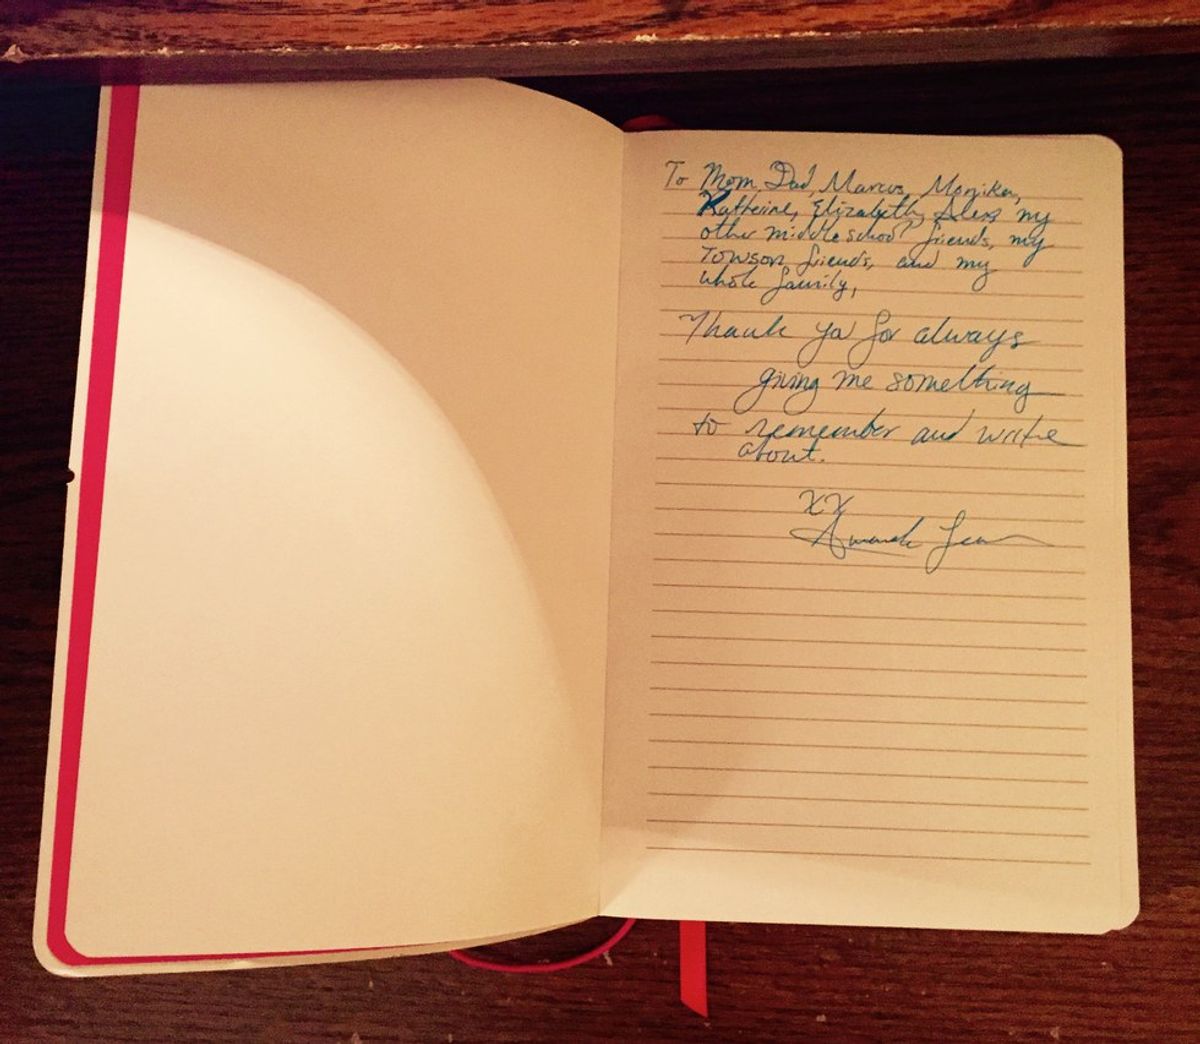 To Mom, Dad, Marcus, Monika,
Katherine, Elizabeth, Alex my
other middle school friends, my
Towson friends, and my
whole family,
Thank you for always
giving me something
to remember and write
about.
XX
Amanda